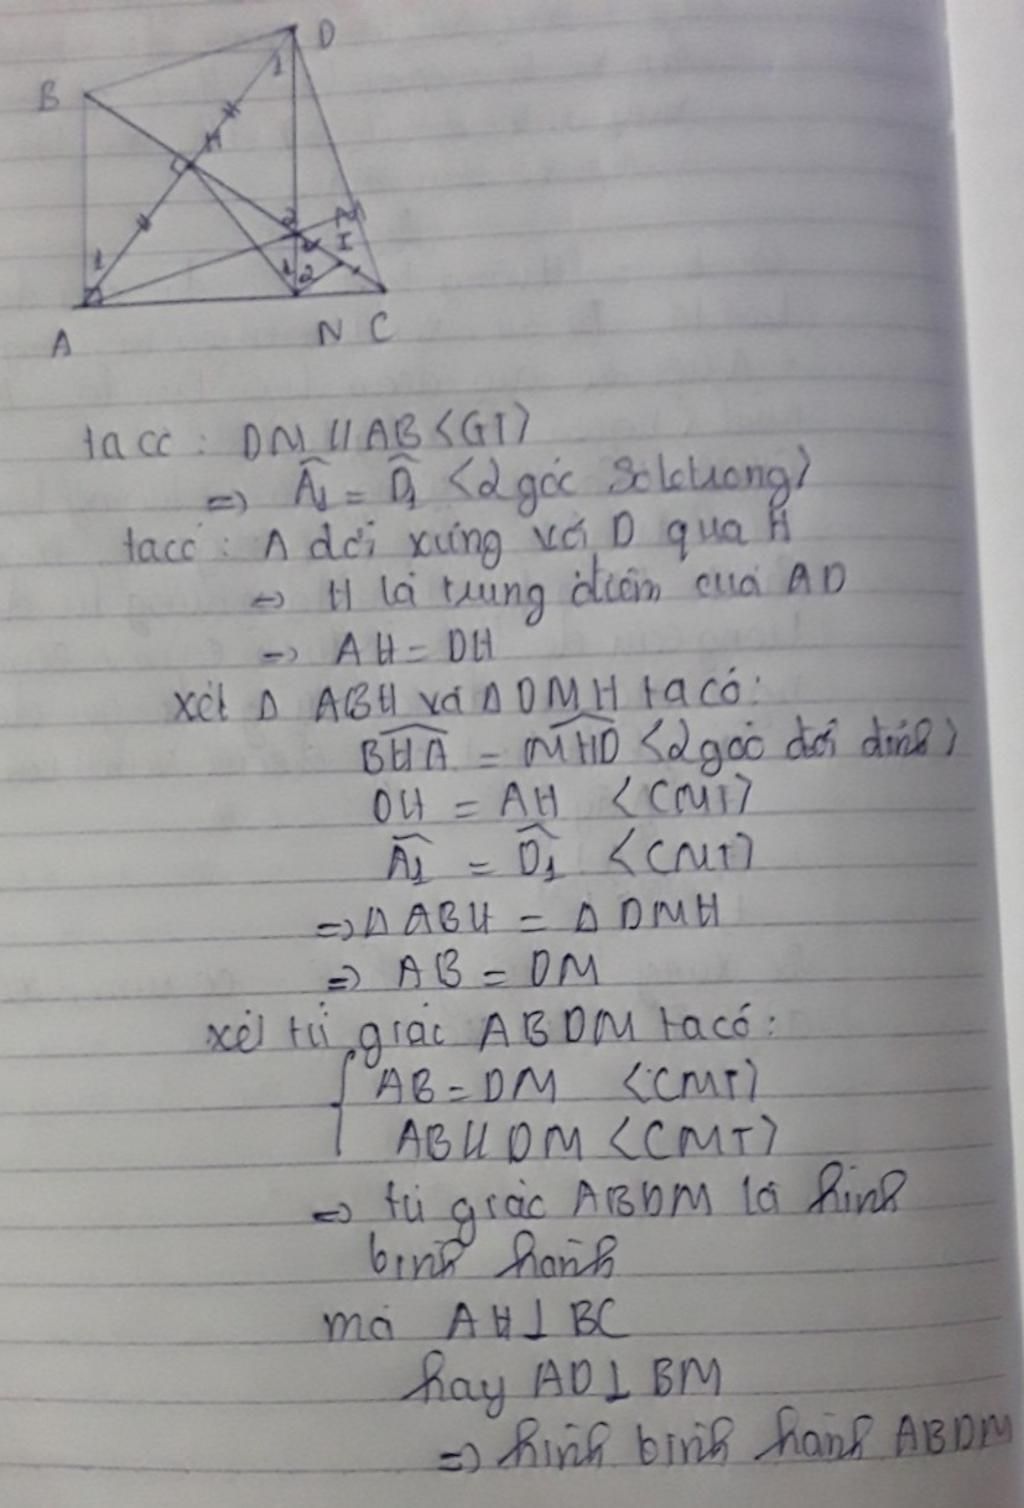 D
B
1
H
K
I
2
1
1 2
A
N C
ta có : DM // AB <GT>
=> Â1 = D̂1 <2 góc so le trong>
ta có : A đối xứng với D qua H
=> H là trung điểm của AD
=> AH = DH
xét Δ ABH và Δ DMH ta có:
BHA = MHD <2 góc đối đỉnh>
DH = AH <CMT>
Â1 = D̂1 <CMT>
=> Δ ABH = Δ DMH
=> AB = DM
xét tứ giác ABDM ta có:
AB = DM <CMT>
AB // DM <CMT>
=> tứ giác ABDM là hình
bình hành
mà AH ⊥ BC
hay AD ⊥ BM
=> hình bình hành ABDM